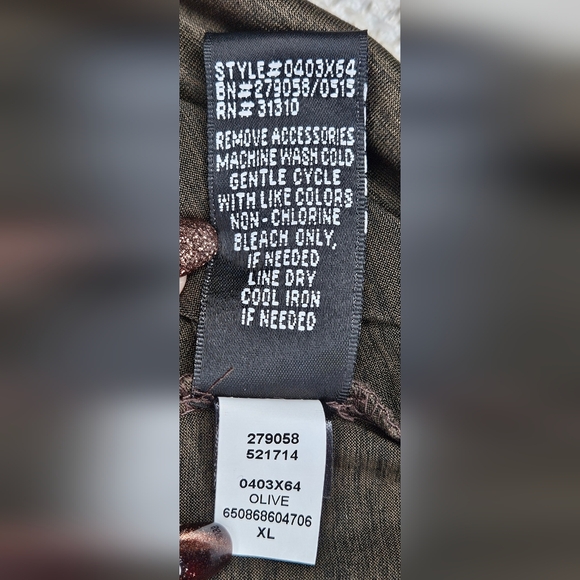 STYLE#0403X64
BN#279058/0315
RN#31310
REMOVE ACCESSORIES
MACHINE WASH COLD
GENTLE CYCLE
WITH LIKE COLORS
NON-CHLORINE
BLEACH ONLY,
IF NEEDED
LINE DRY
COOL IRON
IF NEEDED
279058
521714
0403X64
OLIVE
650868604706
XL